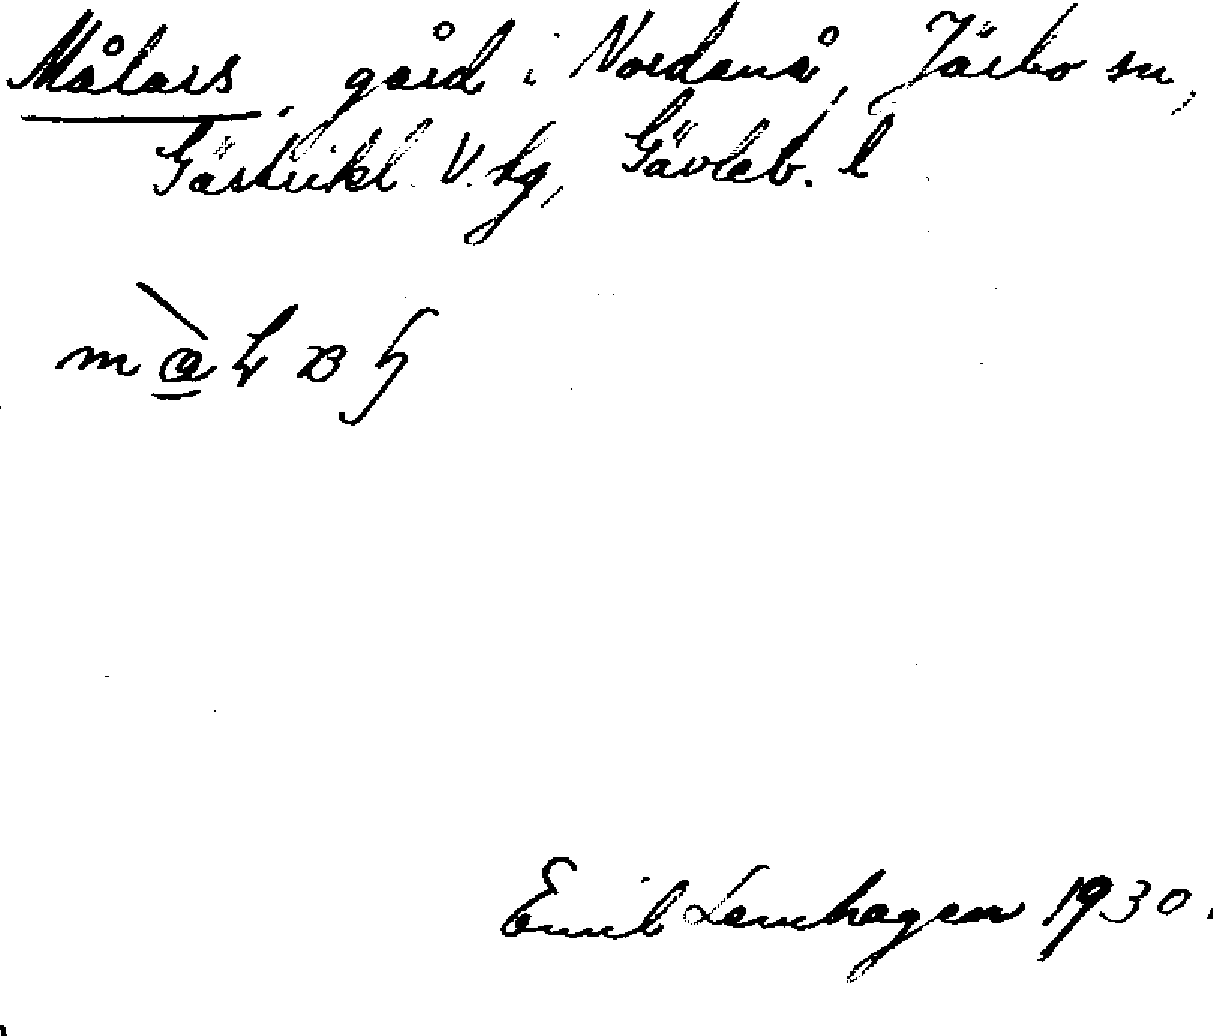 Målars, gård i Nordanå, Järbo sn,
Gästrikl. V. hg, Gävleb. l.
Emil Lenhagen 1930.